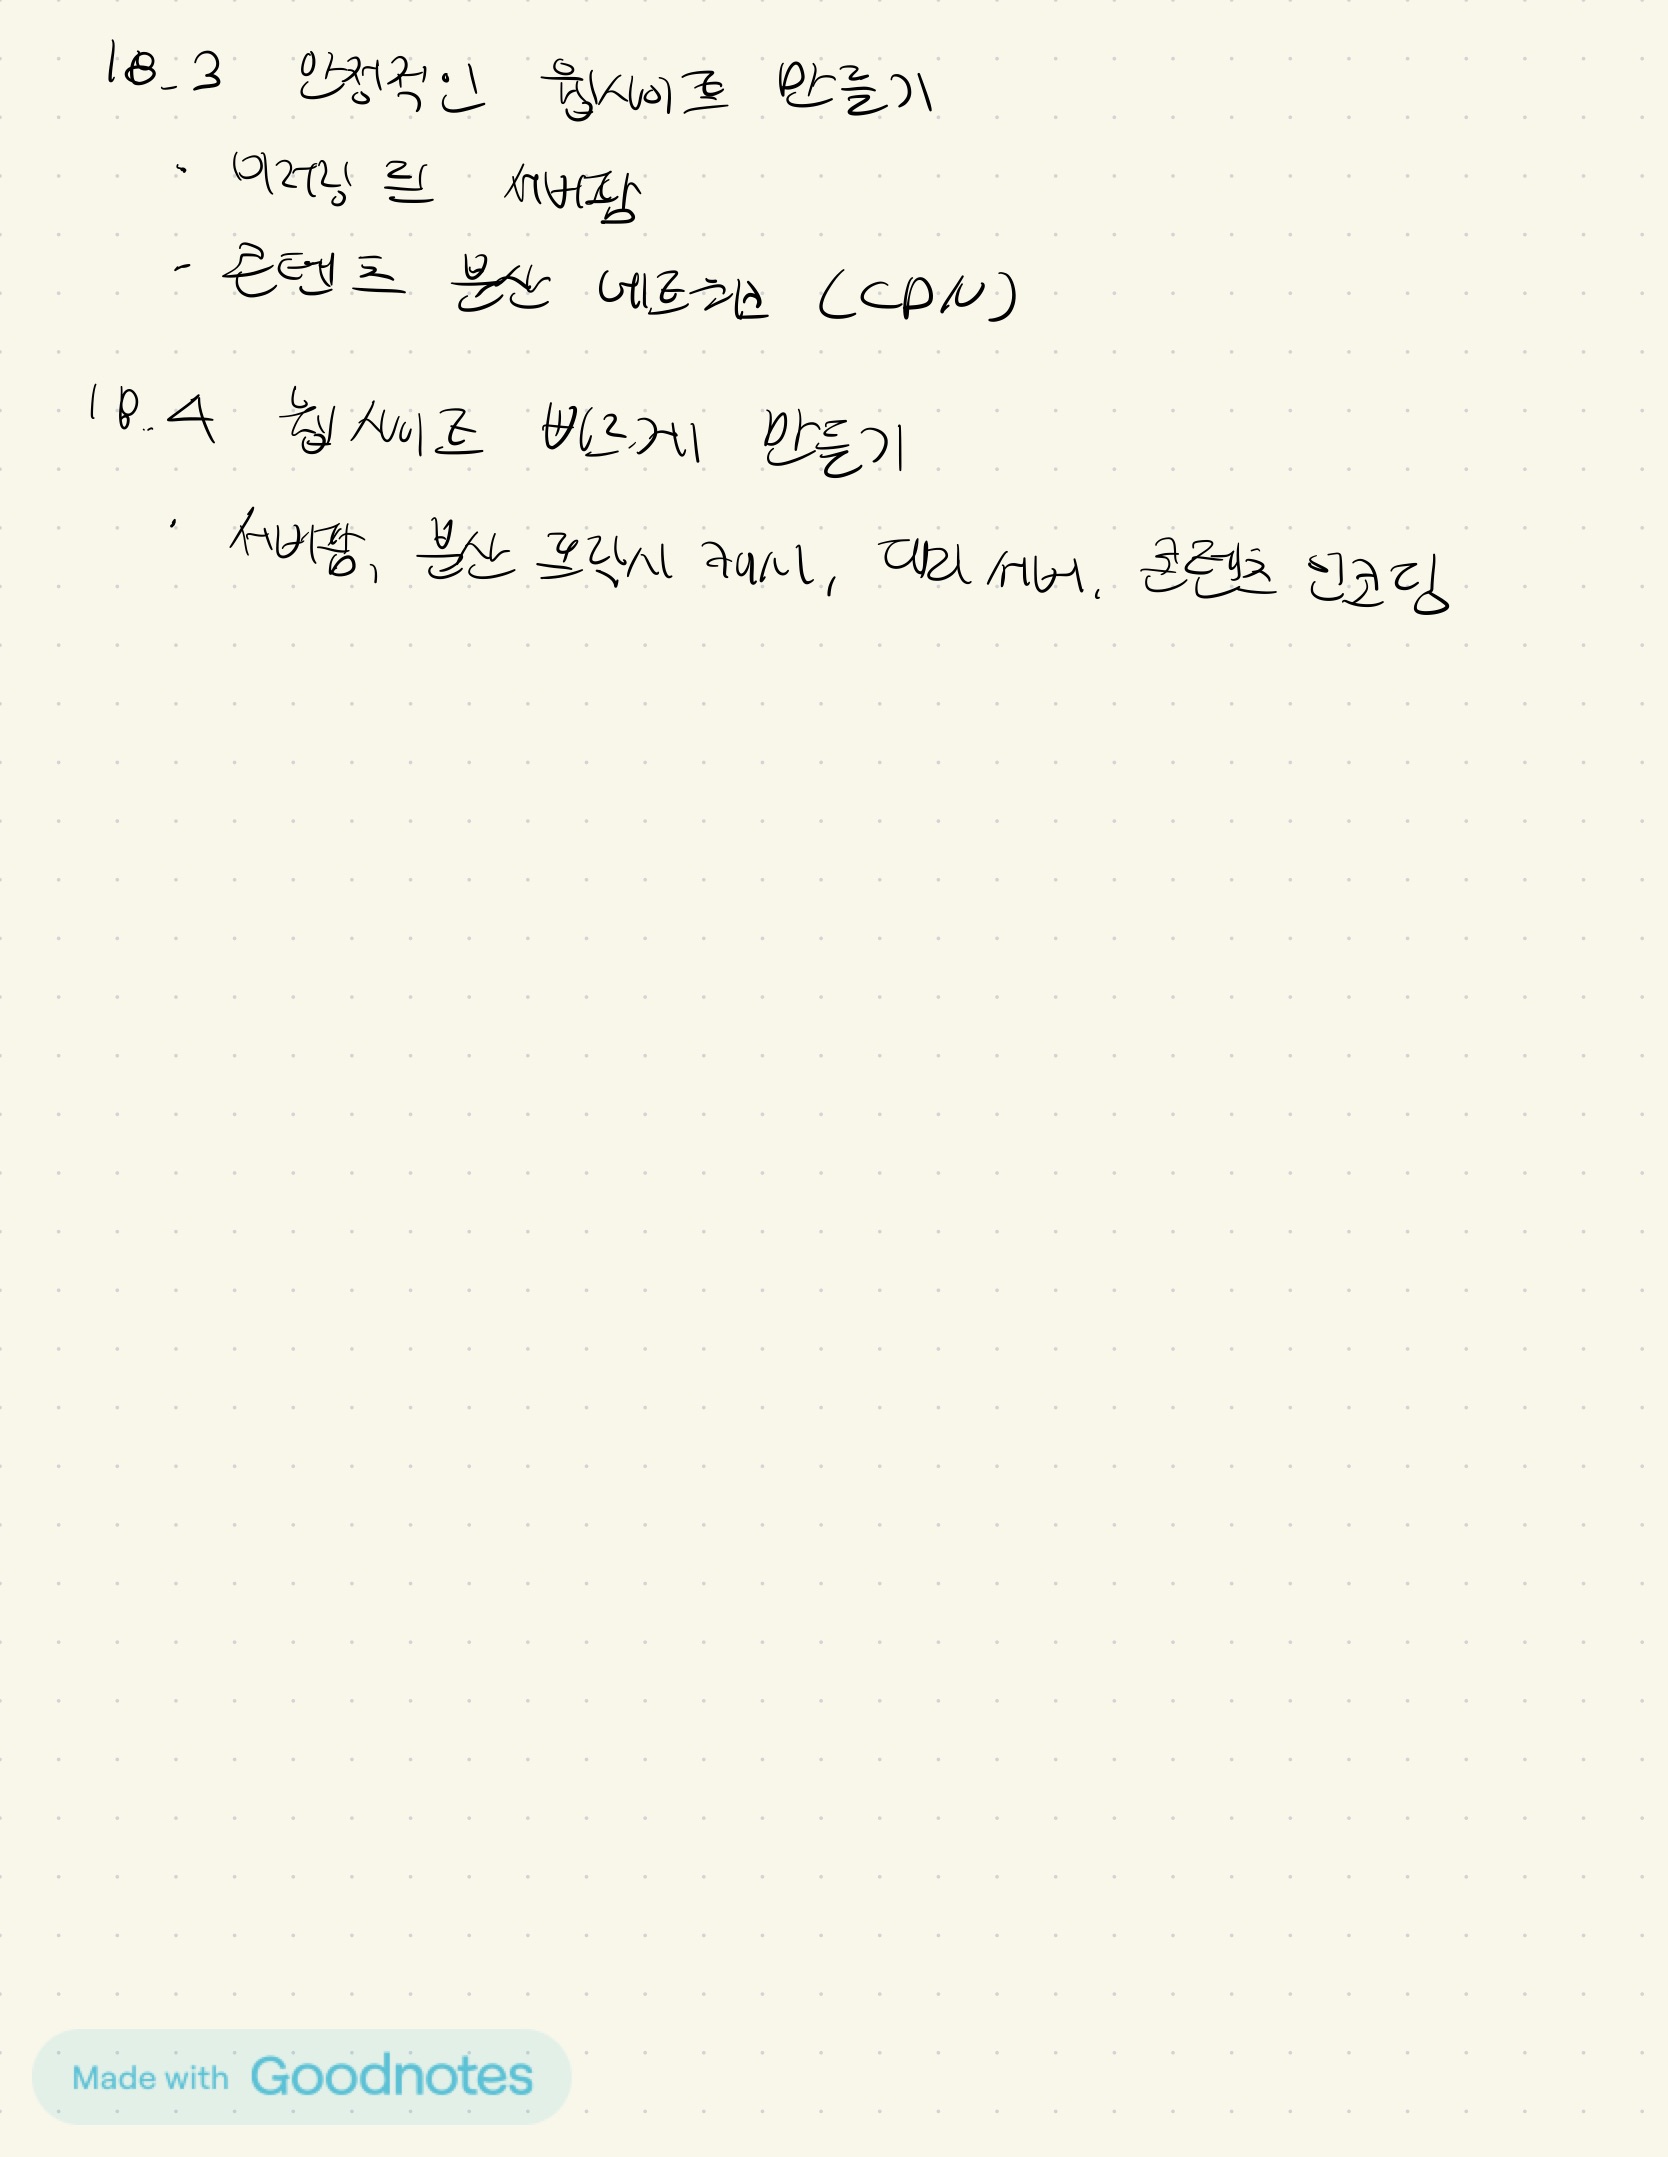 18.3 안정적인 웹사이트 만들기
· 미러링 된 서버팜
- 콘텐츠 분산 네트워크 (CDN)
18.4 웹 사이트 빠르게 만들기
· 서버팜, 분산 프락시 캐시, 대리 서버, 콘텐츠 인코딩
Made with Goodnotes